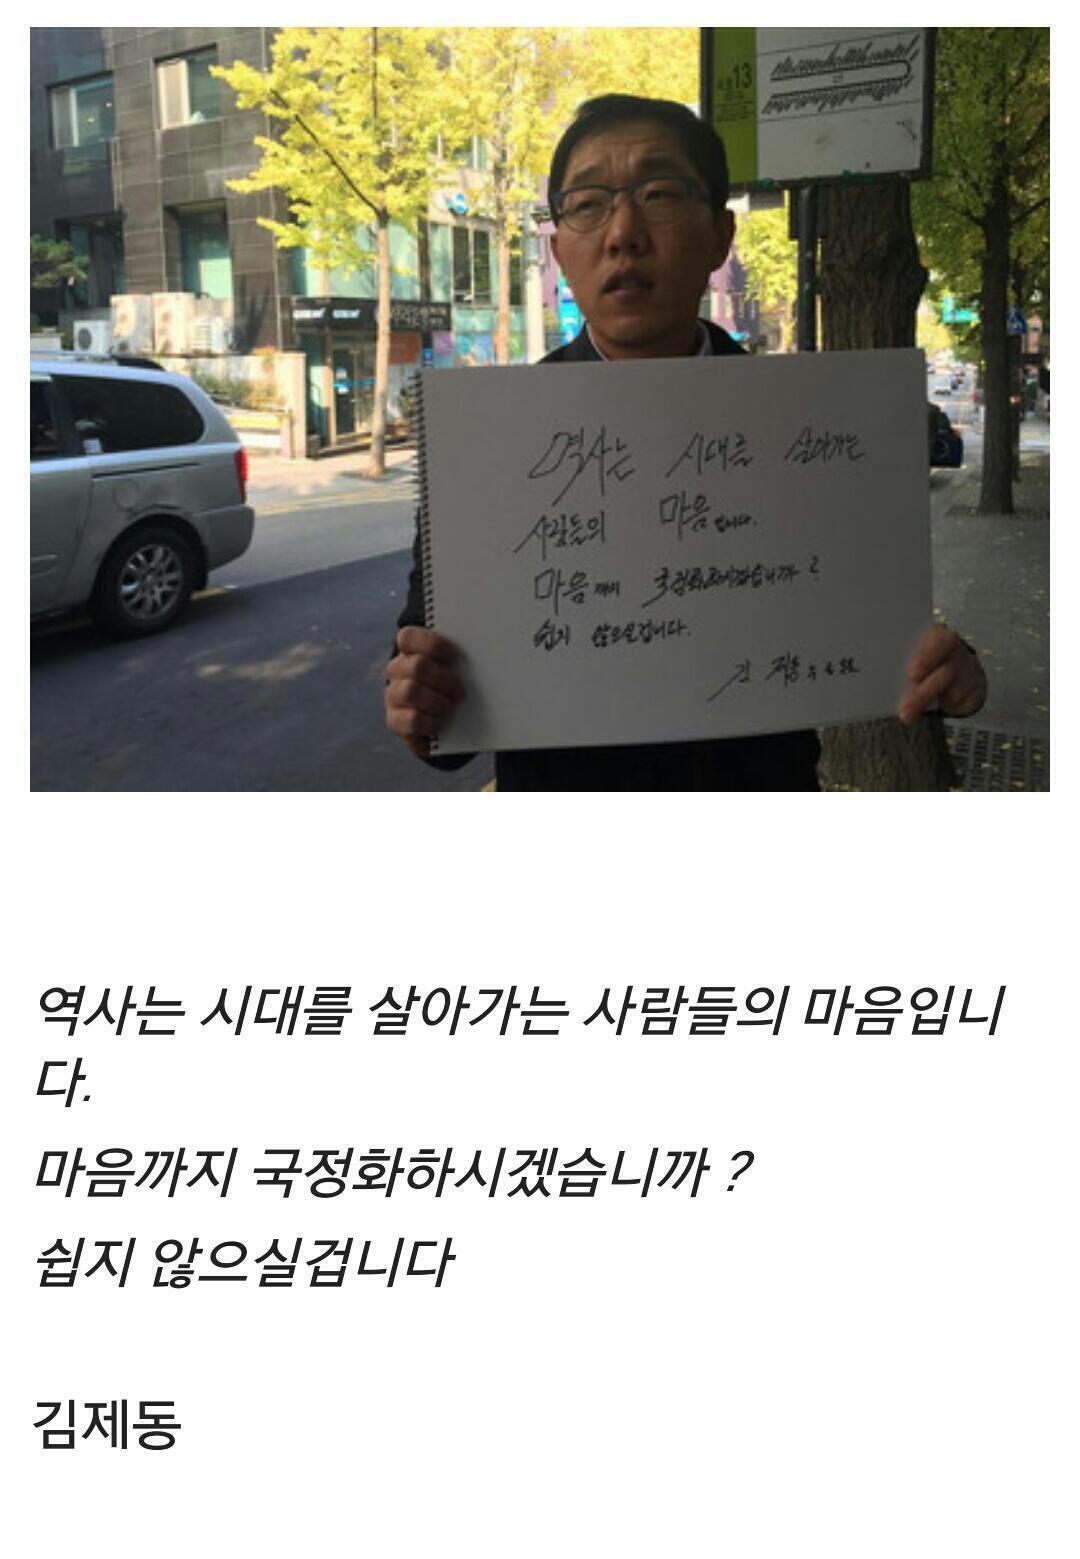 13
역사는 시대를 살아가는
사람들의 마음입니다.
마음까지 국정화하시겠습니까?
쉽지 않으실겁니다.
김제동
역사는 시대를 살아가는 사람들의 마음입니
다.
마음까지 국정화하시겠습니까 ?
쉽지 않으실겁니다
김제동